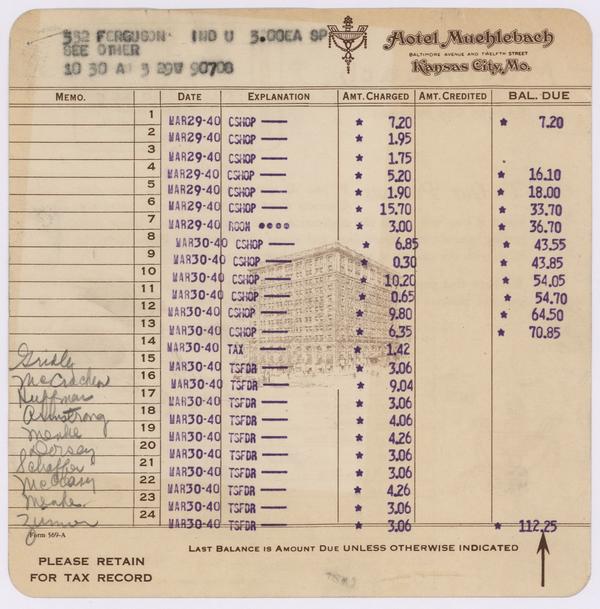 532 FERGUSON IND U 3.00EA SP
SEE OTHER
10 30 A 3 29W 90708
Hotel Muehlebach
BALTIMORE AVENUE AND TWELFTH STREET
Kansas City, Mo.
MEMO. DATE EXPLANATION AMT. CHARGED AMT. CREDITED BAL. DUE
1 MAR29-40 CSHOP — * 7.20 * 7.20
2 MAR29-40 CSHOP — * 1.95
3 MAR29-40 CSHOP — * 1.75
4 MAR29-40 CSHOP — * 5.20 * 16.10
5 MAR29-40 CSHOP — * 1.90 * 18.00
6 MAR29-40 CSHOP — * 15.70 * 33.70
7 MAR29-40 ROOM •••• * 3.00 * 36.70
8 MAR30-40 CSHOP — * 6.85 * 43.55
9 MAR30-40 CSHOP — * 0.30 * 43.85
10 MAR30-40 CSHOP — * 10.20 * 54.05
11 MAR30-40 CSHOP — * 0.65 * 54.70
12 MAR30-40 CSHOP — * 9.80 * 64.50
13 MAR30-40 CSHOP — * 6.35 * 70.85
14 MAR30-40 TAX — * 1.42
Gridley 15 MAR30-40 TSFDR — * 3.06
McCracken 16 MAR30-40 TSFDR — * 9.04
Huffman 17 MAR30-40 TSFDR — * 3.06
Armstrong 18 MAR30-40 TSFDR — * 4.06
Menke 19 MAR30-40 TSFDR — * 4.26
Dorsey 20 MAR30-40 TSFDR — * 3.06
Schaffer 21 MAR30-40 TSFDR — * 3.06
22 MAR30-40 TSFDR — * 4.26
Menke 23 MAR30-40 TSFDR — * 3.06
24 MAR30-40 TSFDR — * 3.06 * 112.25
Form 569-A
LAST BALANCE IS AMOUNT DUE UNLESS OTHERWISE INDICATED
PLEASE RETAIN
FOR TAX RECORD